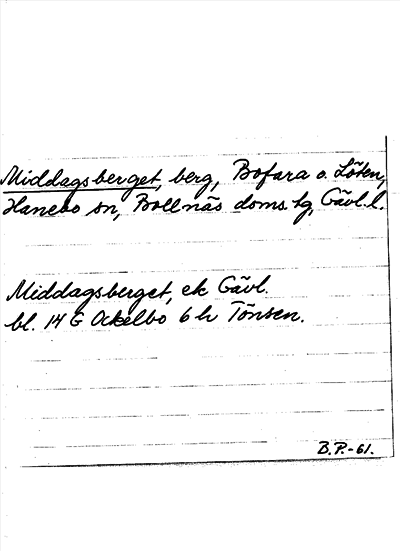 Middagsberget, berg, Bofara o. Löten,
Hanebo sn, Bollnäs doms. tg, Gävl. l.
Middagsberget, ek Gävl.
bl. 14 G Ockelbo 6 h Tönsen.
B.P.-61.